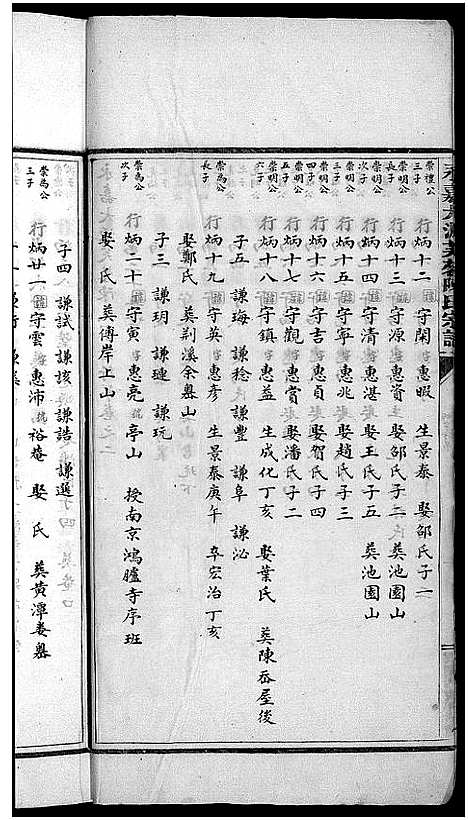 崇禮公三子 行炳十二 諱守閑 字惠暇 生景泰 娶邵氏子一
崇明公長子 行炳十三 諱守源 字惠資 娶邵氏子二 葬池園山
崇明公次子 行炳十四 諱守清 字惠湛 娶王氏子五 葬池園山
崇明公三子 行炳十五 諱守寧 字惠兆 娶趙氏子三
崇明公四子 行炳十六 諱守吉 字惠貞 娶賀氏子四
崇明公五子 行炳十七 諱守觀 字惠賞 娶潘氏子二
崇明公六子 行炳十八 諱守鎮 字惠益 生成化丁亥 娶葉氏 葬陳岙屋後
子五 謙海 謙稔 謙豐 謙阜 謙泌
崇為公長子 行炳十九 諱守英 字惠彥 生景泰庚午 卒宏治丁亥
娶鄭氏 葬荆溪余嶴山
子三 謙玥 謙璉 謙玩
崇為公次子 行炳二十 諱守寅 字惠亮 號亭山 授南京鴻臚寺序班
娶 氏 葬傅岸上山
子四 謙試 謙核 謙誥 謙選
崇為公三子 行炳廿一 諱守雲 字惠沛 號裕庵 娶 氏 葬黃潭婁嶴